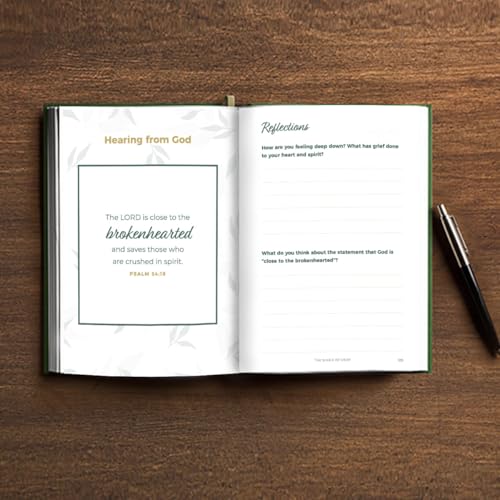 Hearing from God
The LORD is close to the
brokenhearted
and saves those who
are crushed in spirit.
PSALM 34:18
Reflections
How are you feeling deep down? What has grief done
to your heart and spirit?
What do you think about the statement that God is
"close to the brokenhearted"?